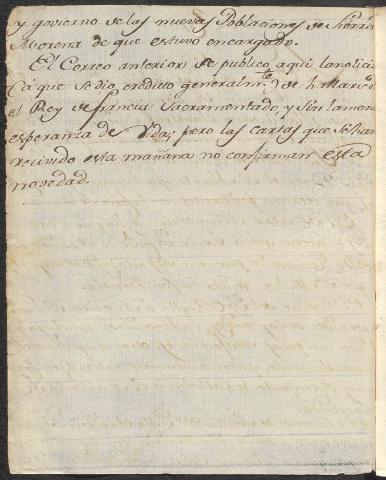 y govierno de las nuevas Poblaciones de Sierra
Morena de que estuvo encargado.
El Correo anterior se publicó aqui la noticia
(á que se dio credito generalm.te) de hallarse
el Rey de francia Sacramentado, y sin la menor
esperanza de Vida; pero las cartas que se han
recivido esta mañana no confirman esta
novedad.